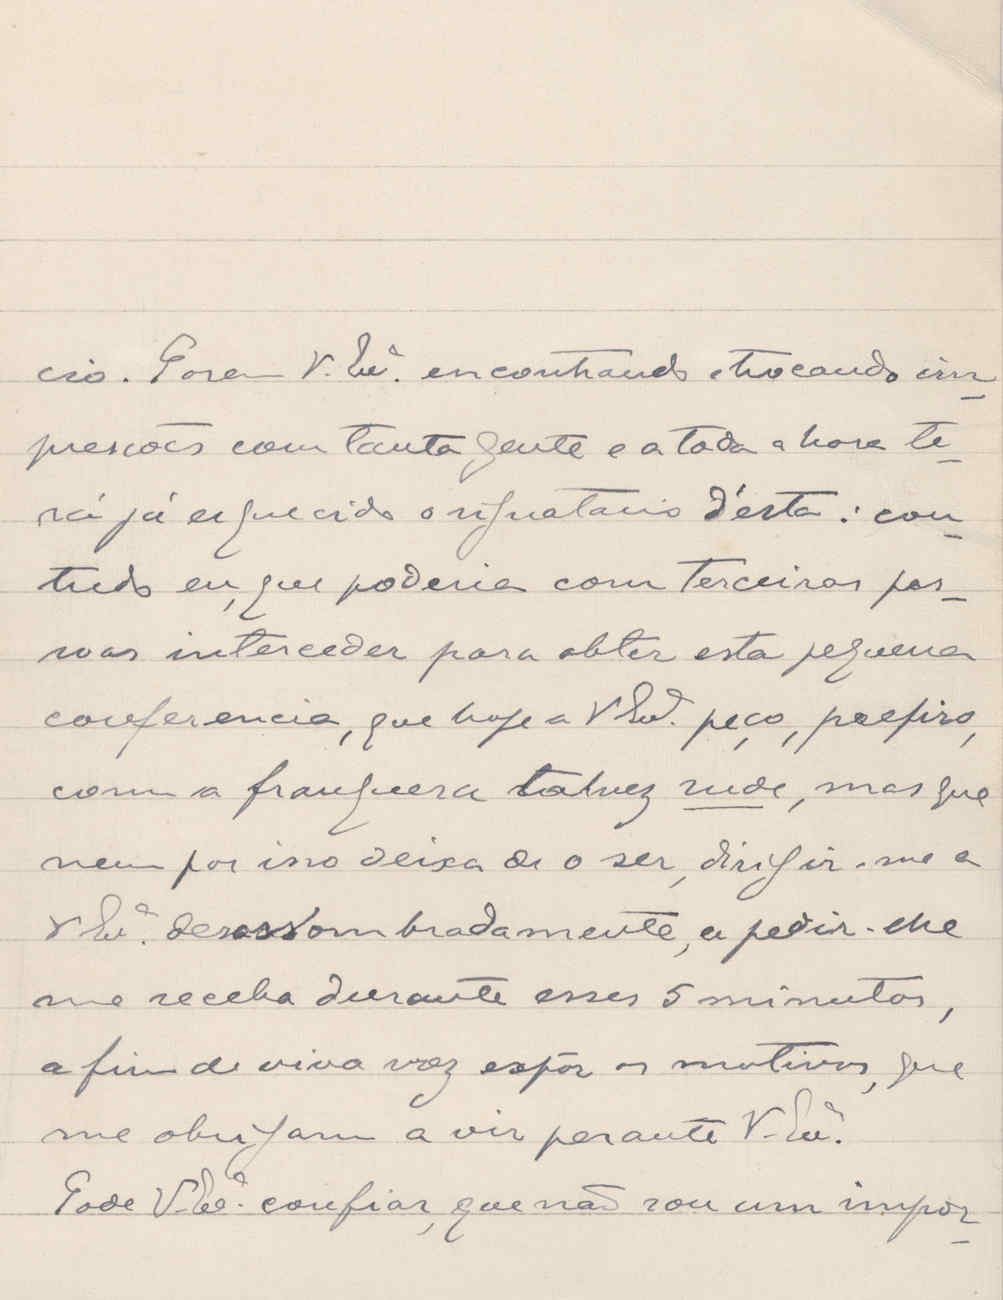 cio. Porem V. Exª. encontrando e trocando im-
presões com tanta gente e a toda a hora te-
rá já esquecido o signatario d'esta: con-
tudo eu, que poderia com terceiras pes-
soas interceder para obter esta pequena
conferencia, que hoje a V Exª. peço, prefiro,
com a franquesa talvez rude, mas que
nem por isso deixa de o ser, dirigir-me a
V Exª. desassombradamente, e pedir-lhe
me receba durante esses 5 minutos,
a fim de viva voz expôr os motivos, que
me obrigam a vir perante V. Exª.
Pode V. Exª. confiar, que não sou um impor-